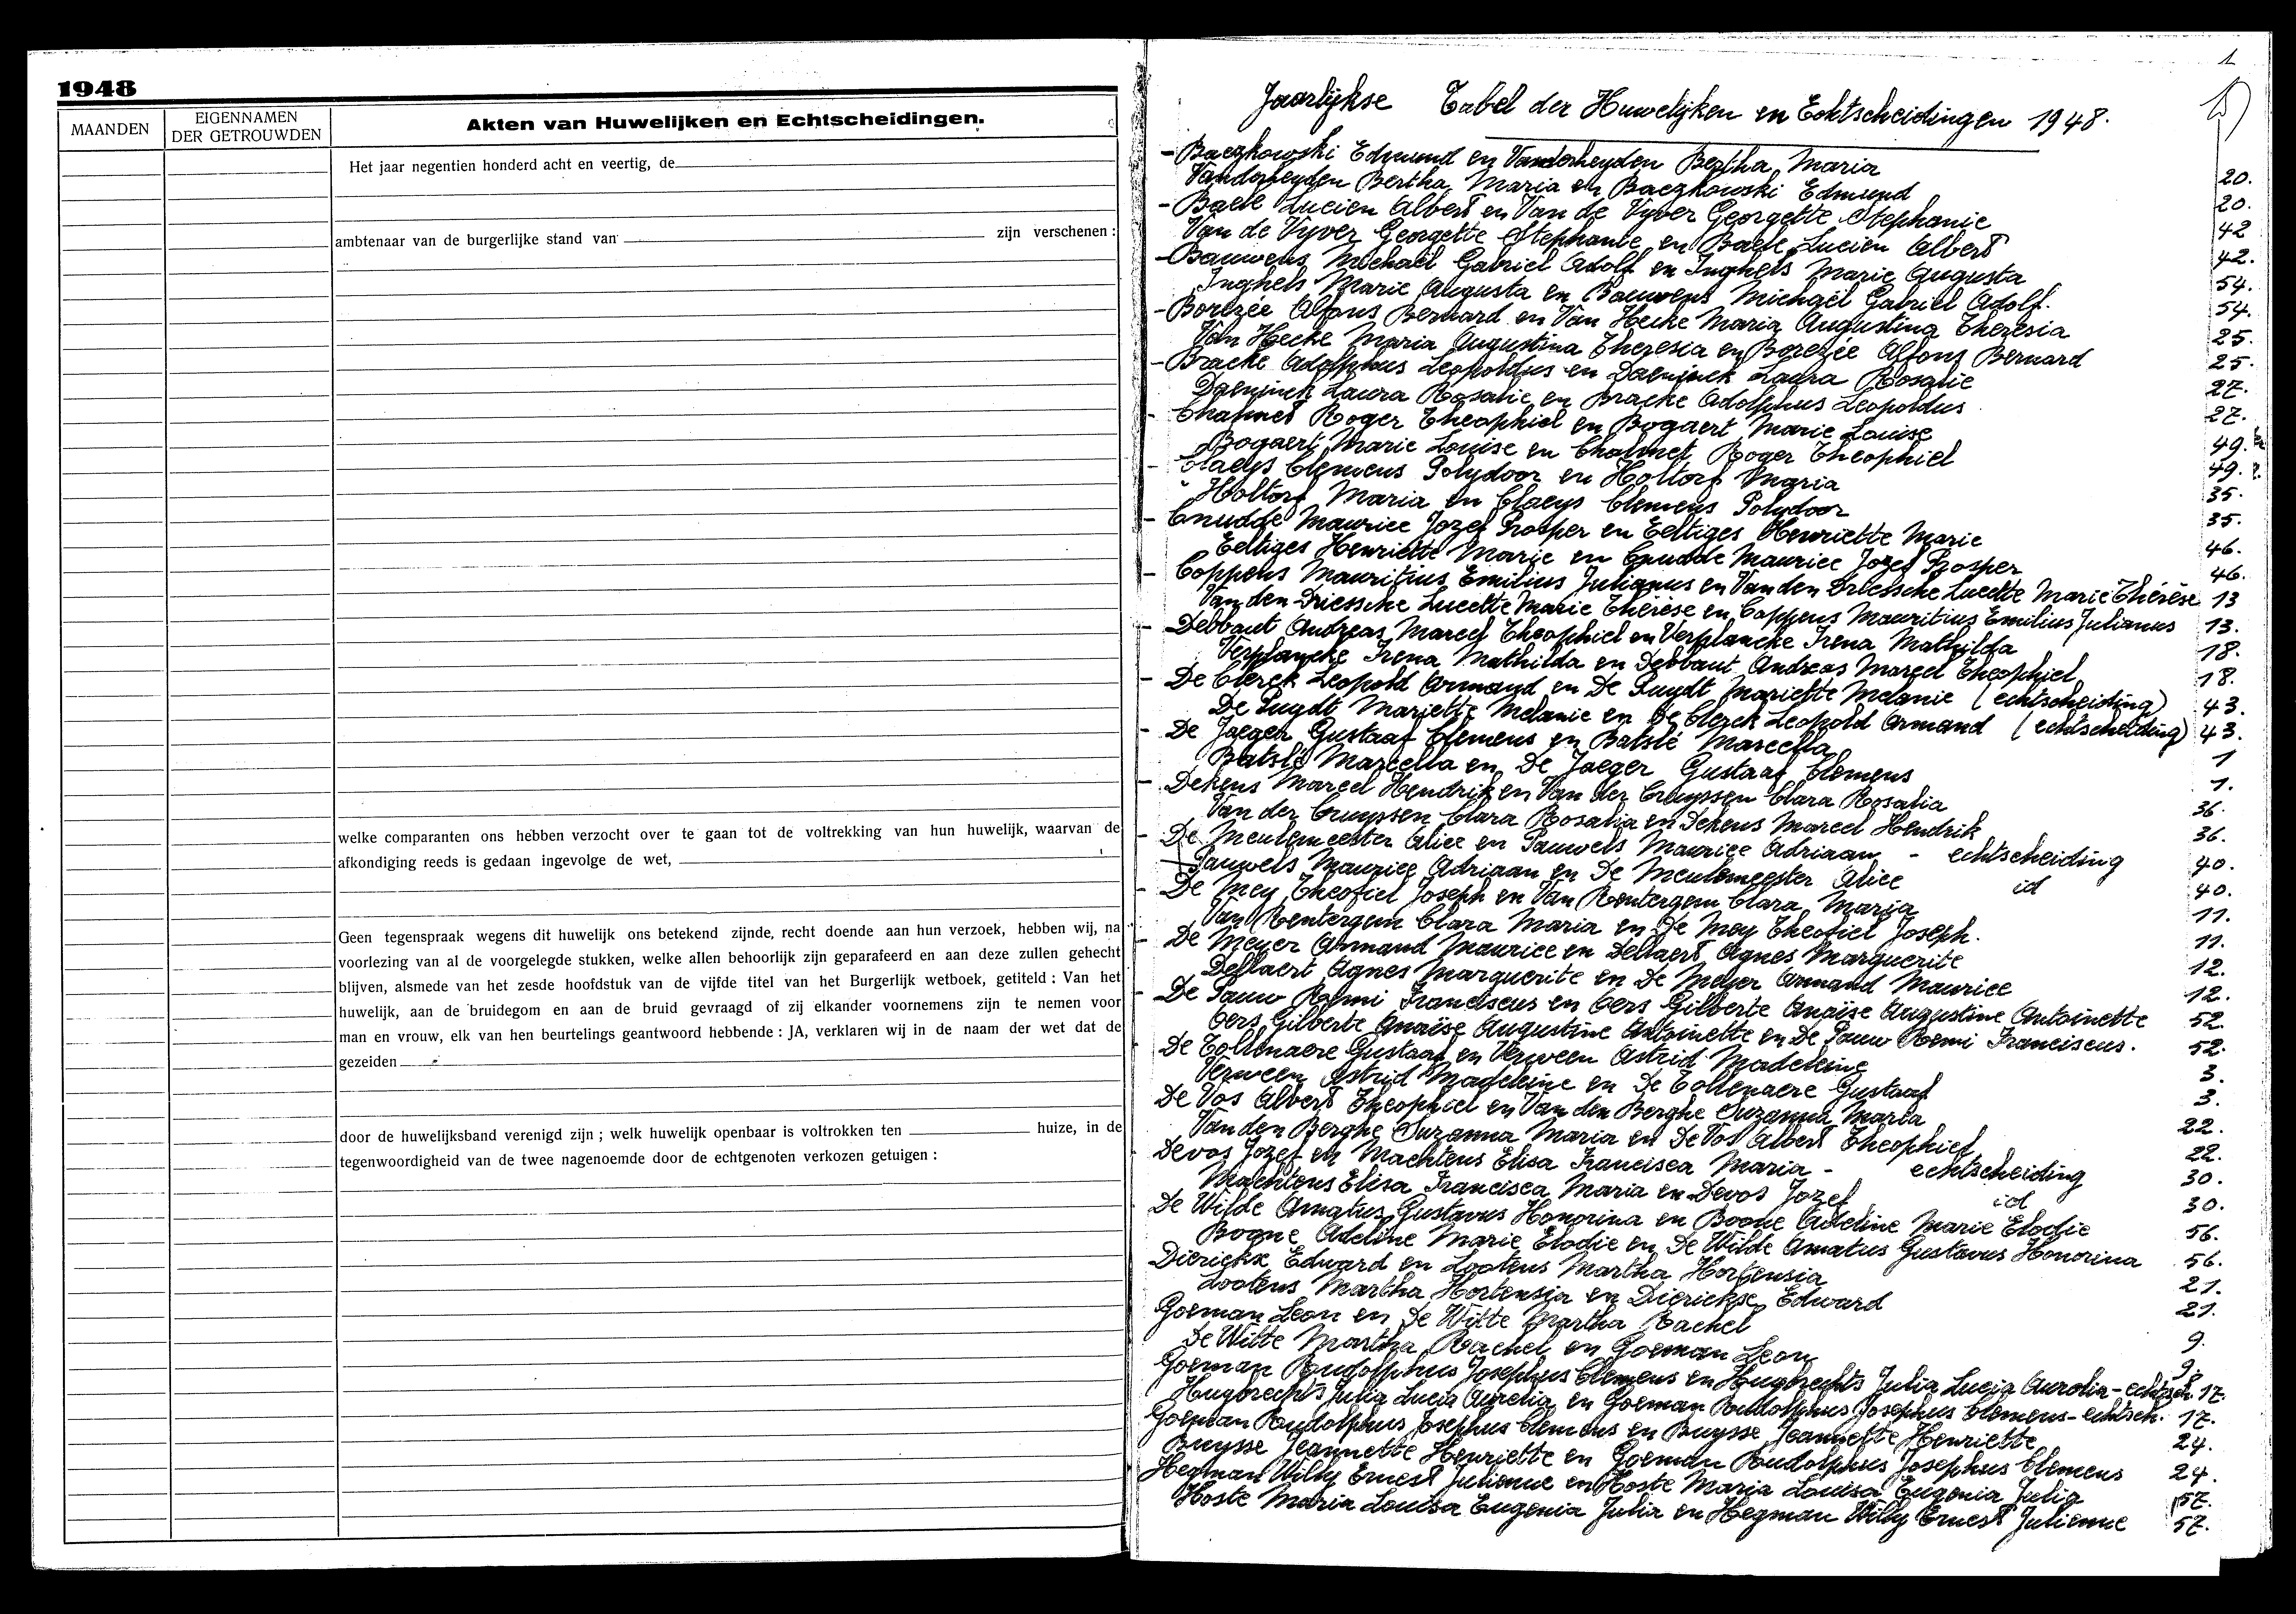 1948
MAANDEN
EIGENNAMEN
DER GETROUWDEN
Akten van Huwelijken en Echtscheidingen.
Het jaar negentien honderd acht en veertig, de
ambtenaar van de burgerlijke stand van zijn verschenen :
welke comparanten ons hebben verzocht over te gaan tot de voltrekking van hun huwelijk, waarvan de
afkondiging reeds is gedaan ingevolge de wet,
Geen tegenspraak wegens dit huwelijk ons betekend zijnde, recht doende aan hun verzoek, hebben wij, na
voorlezing van al de voorgelegde stukken, welke allen behoorlijk zijn geparafeerd en aan deze zullen gehecht
blijven, alsmede van het zesde hoofdstuk van de vijfde titel van het Burgerlijk wetboek, getiteld : Van het
huwelijk, aan de bruidegom en aan de bruid gevraagd of zij elkander voornemens zijn te nemen voor
man en vrouw, elk van hen beurtelings geantwoord hebbende : JA, verklaren wij in de naam der wet dat de
gezeiden
door de huwelijksband verenigd zijn ; welk huwelijk openbaar is voltrokken ten huize, in de
tegenwoordigheid van de twee nagenoemde door de echtgenoten verkozen getuigen :
1
Jaarlijkse Tabel der Huwelijken en Echtscheidingen 1948.
- Baczkowski Edmund en Vanderheyden Bertha Maria 20.
Vanderheyden Bertha Maria en Baczkowski Edmund 20.
- Baele Lucien Albert en Van de Vyver Georgette Stephanie 42
Van de Vyver Georgette Stephanie en Baele Lucien Albert 42.
- Bauwens Michaël Gabriel Adolf en Inghels Marie Augusta 54.
Inghels Marie Augusta en Bauwens Michaël Gabriel Adolf. 54.
- Borezée Alfons Bernard en Van Hecke Maria Augustina Theresia 25.
Van Hecke Maria Augustina Theresia en Borezée Alfons Bernard 25.
- Bracke Adolphus Leopoldus en Daeninck Laura Rosalie 27.
Daeninck Laura Rosalie en Bracke Adolphus Leopoldus 27.
- Chalmet Roger Theophiel en Bogaert Marie Louise 49.
Bogaert Marie Louise en Chalmet Roger Theophiel 49.
- Claeys Clemens Polydoor en Holtorf Maria 35.
Holtorf Maria en Claeys Clemens Polydoor 35.
- Cnudde Maurice Jozef Prosper en Eeltiges Henriette Marie 46.
Eeltiges Henriette Marie en Cnudde Maurice Jozef Prosper 46.
- Coppens Mauritius Emilius Julianus en Van den Driessche Lucette Marie Thérèse 13
Van den Driessche Lucette Marie Thérèse en Coppens Mauritius Emilius Julianus 13.
- Debbaut Andreas Marcel Theophiel en Verplancke Irena Mathilda 18.
Verplancke Irena Mathilda en Debbaut Andreas Marcel Theophiel 18.
- De Clerck Leopold Armand en De Puydt Mariette Melanie (echtscheiding) 43.
De Puydt Mariette Melanie en De Clerck Leopold Armand (echtscheiding) 43.
- De Jaeger Gustaaf Clemens en Batslé Marcella 1
Batslé Marcella en De Jaeger Gustaaf Clemens 1.
- Dekens Marcel Hendrik en Van der Cruyssen Clara Rosalia 36.
Van der Cruyssen Clara Rosalia en Dekens Marcel Hendrik 36.
- De Meulemeester Alice en Pauwels Maurice Adriaan - echtscheiding 40.
Pauwels Maurice Adriaan en De Meulemeester Alice id 40.
- De Mey Theofiel Joseph en Van Rentergem Clara Maria 11.
Van Rentergem Clara Maria en De Mey Theofiel Joseph. 11.
- De Meyer Armand Maurice en Dellaert Agnes Marguerite 12.
Dellaert Agnes Marguerite en De Meyer Armand Maurice 12.
- De Pauw Remi Franciscus en Cers Gilberte Anaïse Augustine Antoinette 52.
Cers Gilberte Anaïse Augustine Antoinette en De Pauw Remi Franciscus. 52.
De Coltenaere Gustaaf en Verween Astrid Madeleine 3.
Verween Astrid Madeleine en De Coltenaere Gustaaf 3.
De Vos Albert Theophiel en Van den Berghe Suzanna Maria 22.
Van den Berghe Suzanna Maria en De Vos Albert Theophiel 22.
Devos Jozef en Machtens Elisa Francisca Maria - echtscheiding 30.
Machtens Elisa Francisca Maria en Devos Jozef id 30.
De Wilde Amatus Gustavus Honorina en Boone Adeline Marie Elodie 56.
Boone Adeline Marie Elodie en De Wilde Amatus Gustavus Honorina 56.
Dierickx Edward en Lootens Martha Hortensia 21.
Lootens Martha Hortensia en Dierickx Edward 21.
Goeman Leon en De Witte Martha Rachel 9.
De Witte Martha Rachel en Goeman Leon 9.
Goeman Rudolphus Josephus Clemens en Huybrechts Julia Lucia Aurelia - echtsch. 17.
Huybrechts Julia Lucia Aurelia en Goeman Rudolphus Josephus Clemens - echtsch. 17.
Goeman Rudolphus Josephus Clemens en Buysse Jeannette Henriette 24.
Buysse Jeannette Henriette en Goeman Rudolphus Josephus Clemens 24.
Hegman Willy Ernest Julienne en Hoste Maria Louisa Eugenia Julia 57.
Hoste Maria Louisa Eugenia Julia en Hegman Willy Ernest Julienne 57.